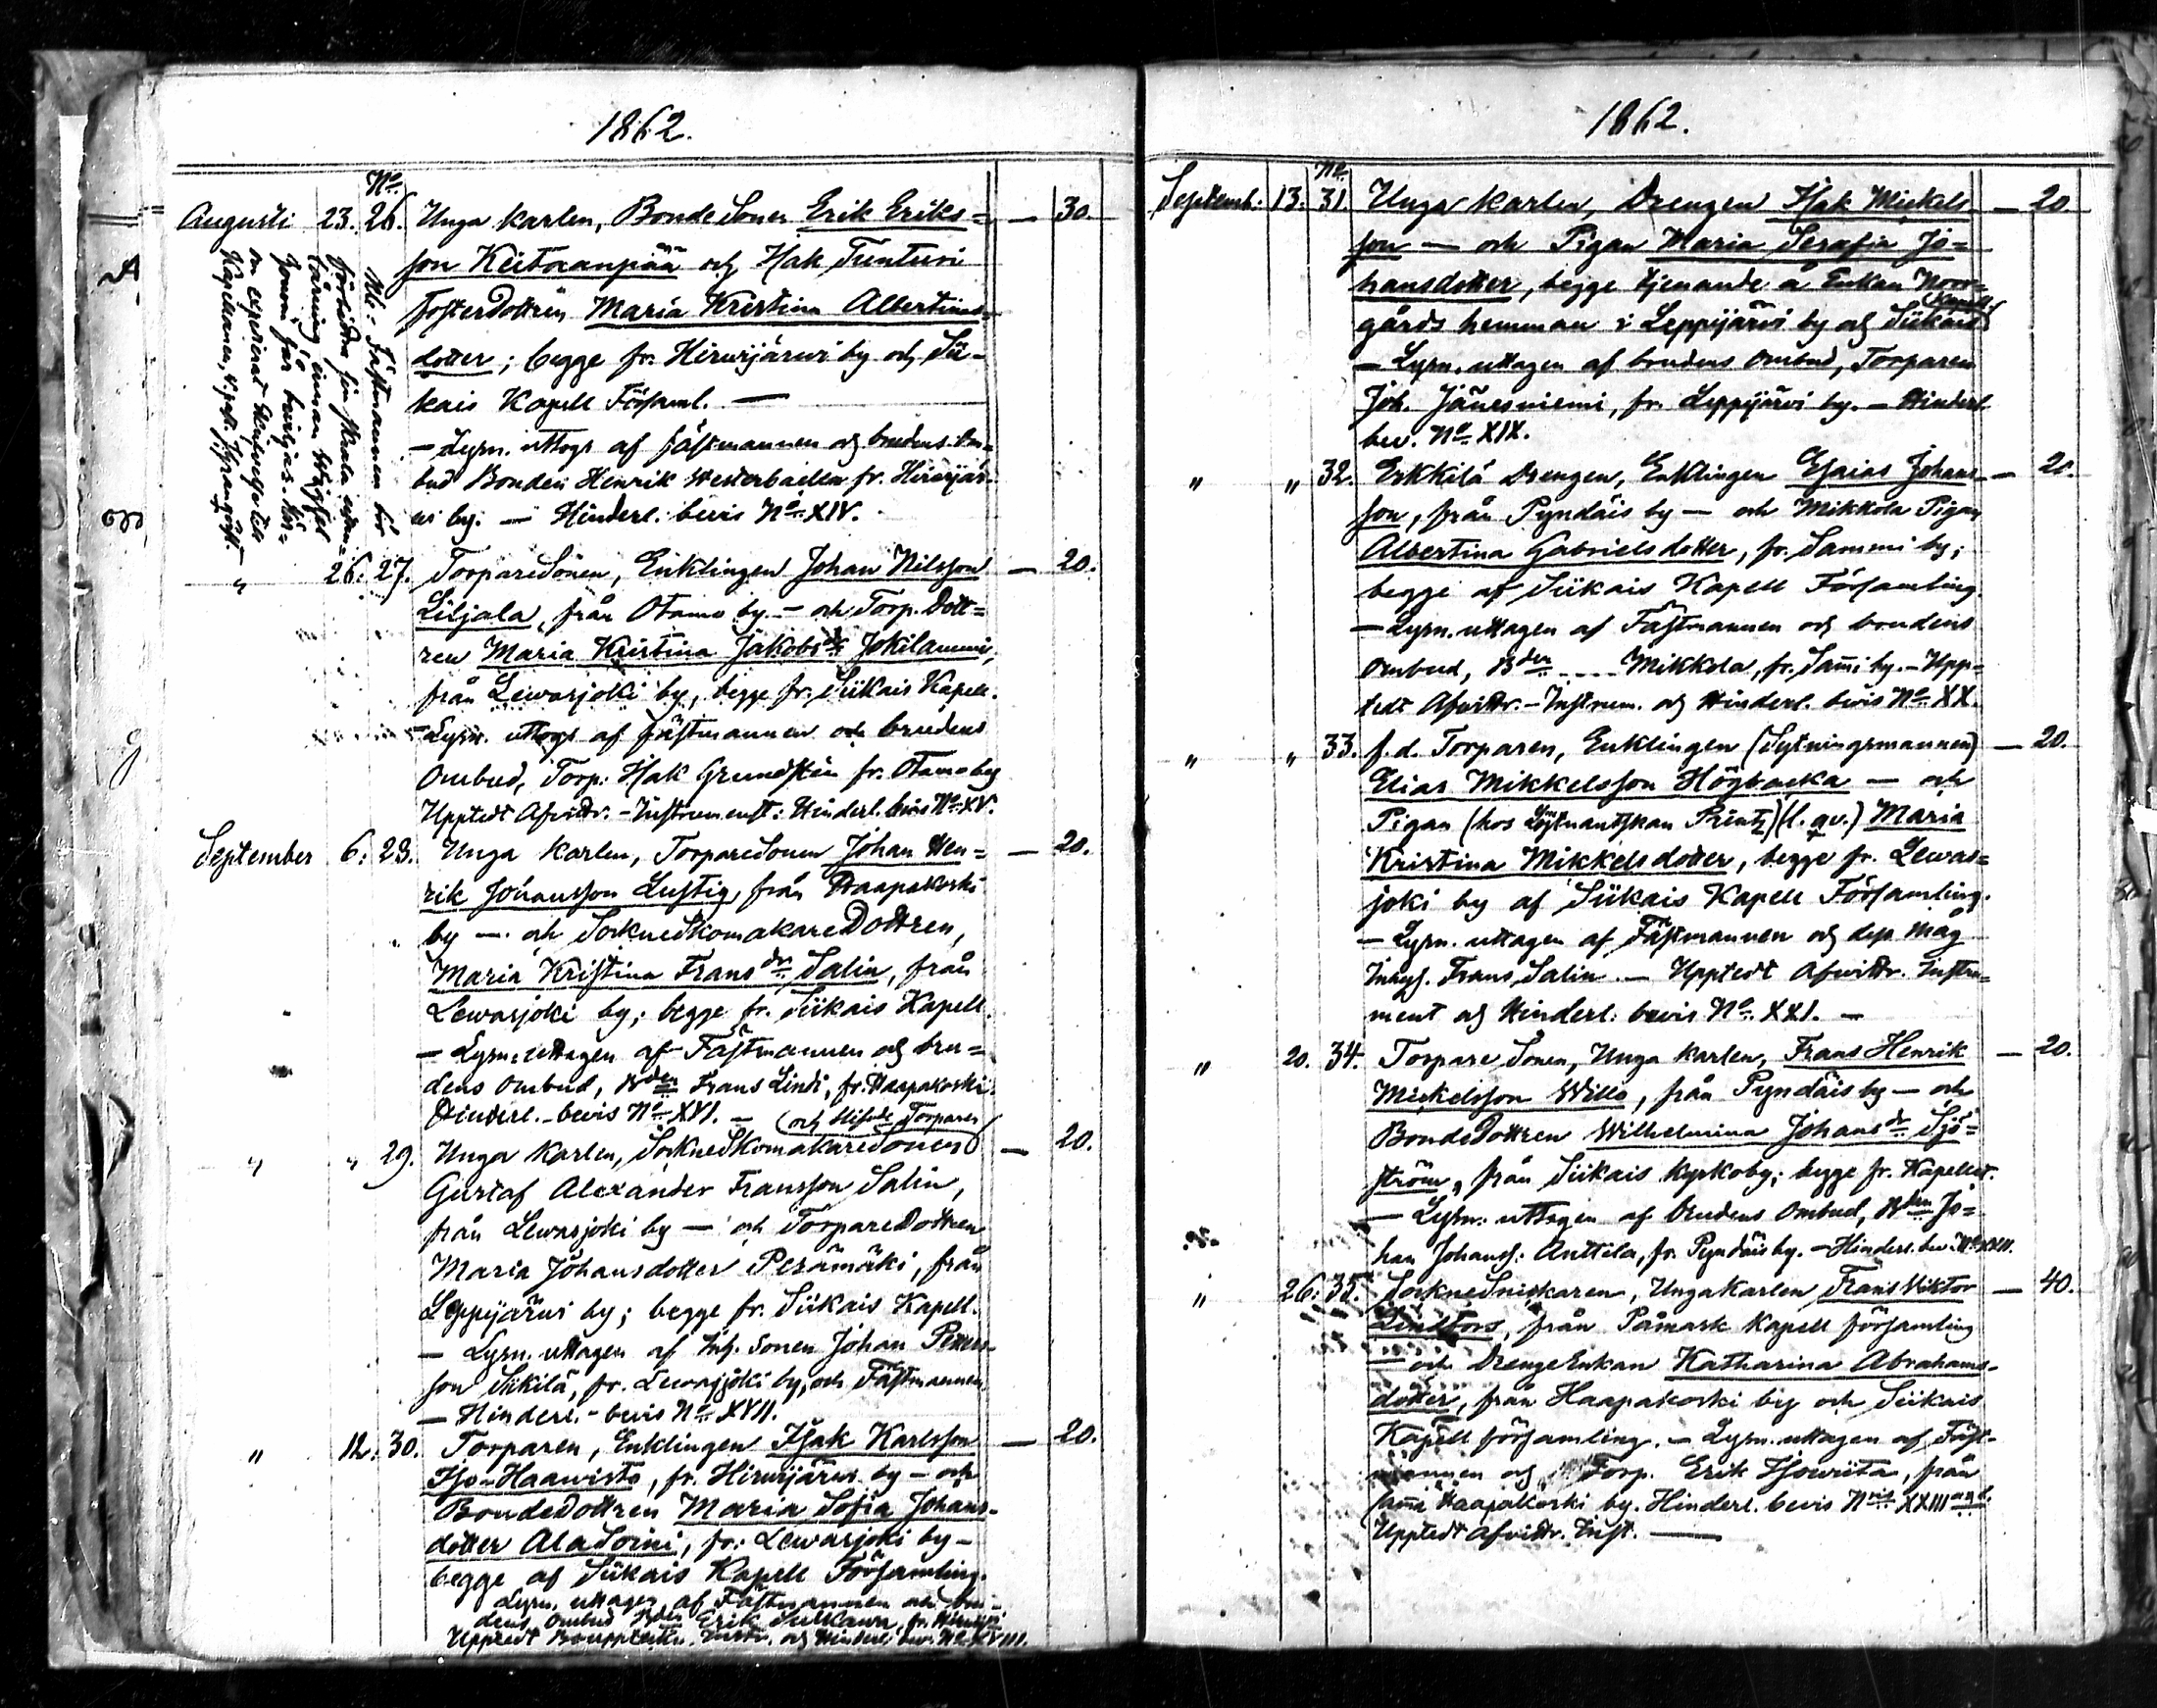 1862.
No
Augusti 23. 26. Unga karlen, BondeSonen Erik Eriks= — 30.
son Keitaanpää och Isak Tunturi
fosterdottren Maria Kristina Albertina-
dotter; begge fr. Hirwijärwi by och Sii-
kais Kapell Församl. —
— Lysn. uttogs af fästmannen och brudens Om-
bud Bonden Henrik Westerbacka fr. Hirwijär-
wi by. — Hinderl. bevis No XIV.
" 26. 27. TorpareSonen, Enklingen Johan Nilsson — 20.
Liljala, från Otamo by. — och Torp. Dott=
ren Maria Kristina Jakobsdr Jokilammi,
från Lewasjoki by, begge fr. Siikais Kapell.
— Lysn. uttogs af fästmannen och brudens
Ombud, Torp. Isak Grundstén fr. Otamo by
Upptedt Afvittr. - Instrument: Hinderl. bevis No XV.
September 6. 28. Unga karlen, TorpareSonen Johan Hen= — 20.
rik Johansson Lustig, från Haapakoski
by — och SockneSkomakareDottren,
Maria Kristina Fransdr Salin, från
Lewasjoki by; begge fr. Siikais Kapell.
— Lysn. uttagen af Fästmannen och bru=
dens Ombud, Bden Frans Lindi, fr. Haapakoski.
Hinderl. bevis No XVI. —
och Torparen
" " 29. Unga karlen, SockneSkomakareSonen — 20.
Gustaf Alexander Fransson Salin,
från Lewasjoki by — och TorpareDottren
Maria Johansdotter Perämäki, från
Leppijärwi by; begge fr. Siikais Kapell.
— Lysn. uttagen af Inh. Sonen Johan Petters-
son Siikilä, fr. Lewasjoki by, och Fästmannen.
— Hinderl. - bevis No XVII.
" 12. 30. Torparen, Enklingen Isak Karlsson — 20.
Iso-Haawisto, fr. Hirwijärwi by — och
BondeDottren Maria Sofia Johans-
dotter AlaSorini, fr. Lewasjoki by —
begge af Siikais Kapell Församling.
Lysn. uttagen af Fästmannen och bru-
dens Ombud Bden Erik Sulkawa, fr. Hirwijärwi
Upptedt Instr. och Hinderl. bev. No XVIII.
Nb. Fästmannen bör
förbättra sin
läsning innan Wigsel
honom får beviljas.
Kapellanen, v. past.
1862.
No
Septemb. 13. 31. Unga karlen, Drengen Isak Mickels — 20.
son — och Pigan Maria Serafia Jo=
hansdotter, begge tjenande å Enkan Norr=
gårds hemman i Leppijärwi by och Siikais Kapell
— Lysn. uttagen af brudens Ombud, Torparen
Joh. Jänesniemi, fr. Leppijärwi by. — Hinderl.
bev. No XIX.
" " 32. Erkkilä Drengen, Enklingen Esaias Johans- — 20.
son, från Pyndäis by — och Mikkola Pigan
Albertina Gabrielsdotter, fr. Sammi by;
begge af Siikais Kapell Församling.
— Lysn. uttagen af Fästmannen och brudens
Ombud, Bden .... Mikkola, fr. Sam̄i by. — Upp=
tedt Afvittr. - Instrum. och Hinderl. bevis No XX.
" " 33. f. d. Torparen, Enklingen (Sytningsmannen) — 20.
Elias Mikkelsson Högbacka — och
Pigan (hos Löjtnantskan Printz) (l. qv.) Maria
Kristina Mikkelsdotter, begge fr. Lewas=
joki by af Siikais Kapell Församling.
— Lysn. uttagen af Fästmannen och dess Måg
Inhys. Frans Salin. — Upptedt Afvittr. Instru-
ment och Hinderl. bevis No XXI. —
" 20. 34. TorpareSonen, Unga karlen, Frans Henrik — 20.
Mickelsson Willo, från Pyndäis by — och
BondeDottren Wilhelmina Johansdr Sjö=
ström, från Siikais Kyrkoby; begge fr. Kapellet.
— Lysn. uttagen af brudens Ombud, Bden Jo=
han Johanss. Anttila, fr. Pyndäis by. — Hinderl. bev. No XXII.
" 26. 35. SockneSnickaren, Unga Karlen Frans Wiktor — 40.
Lindfors, från Påmark Kapell församling
— och DrengeEnkan Katharina Abrahams-
dotter, från Haapakoski by och Siikais
Kapell församling. — Lysn. uttagen af Fäst-
mannen och Torp. Erik Isowiita, från
sam̄a Haapakoski by. Hinderl. bevis XXIII
Upptedt Afvittr. Inst. —